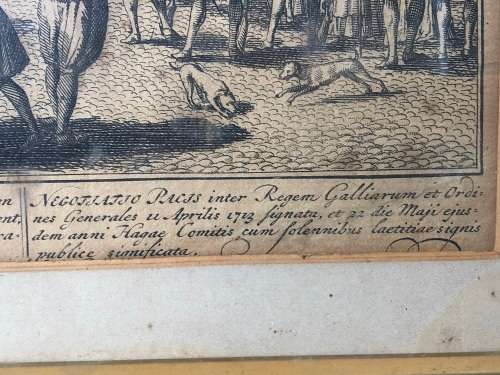 en
ent,
ca.
NEGOTIATIO PACIS inter Regem Galliarum et Ordi-
nes Generales 11 Aprilis 1713 signata, et 22 die Maji ejus-
dem anni Hagae Comitis cum solennibus laetitiae signis
publice significata.